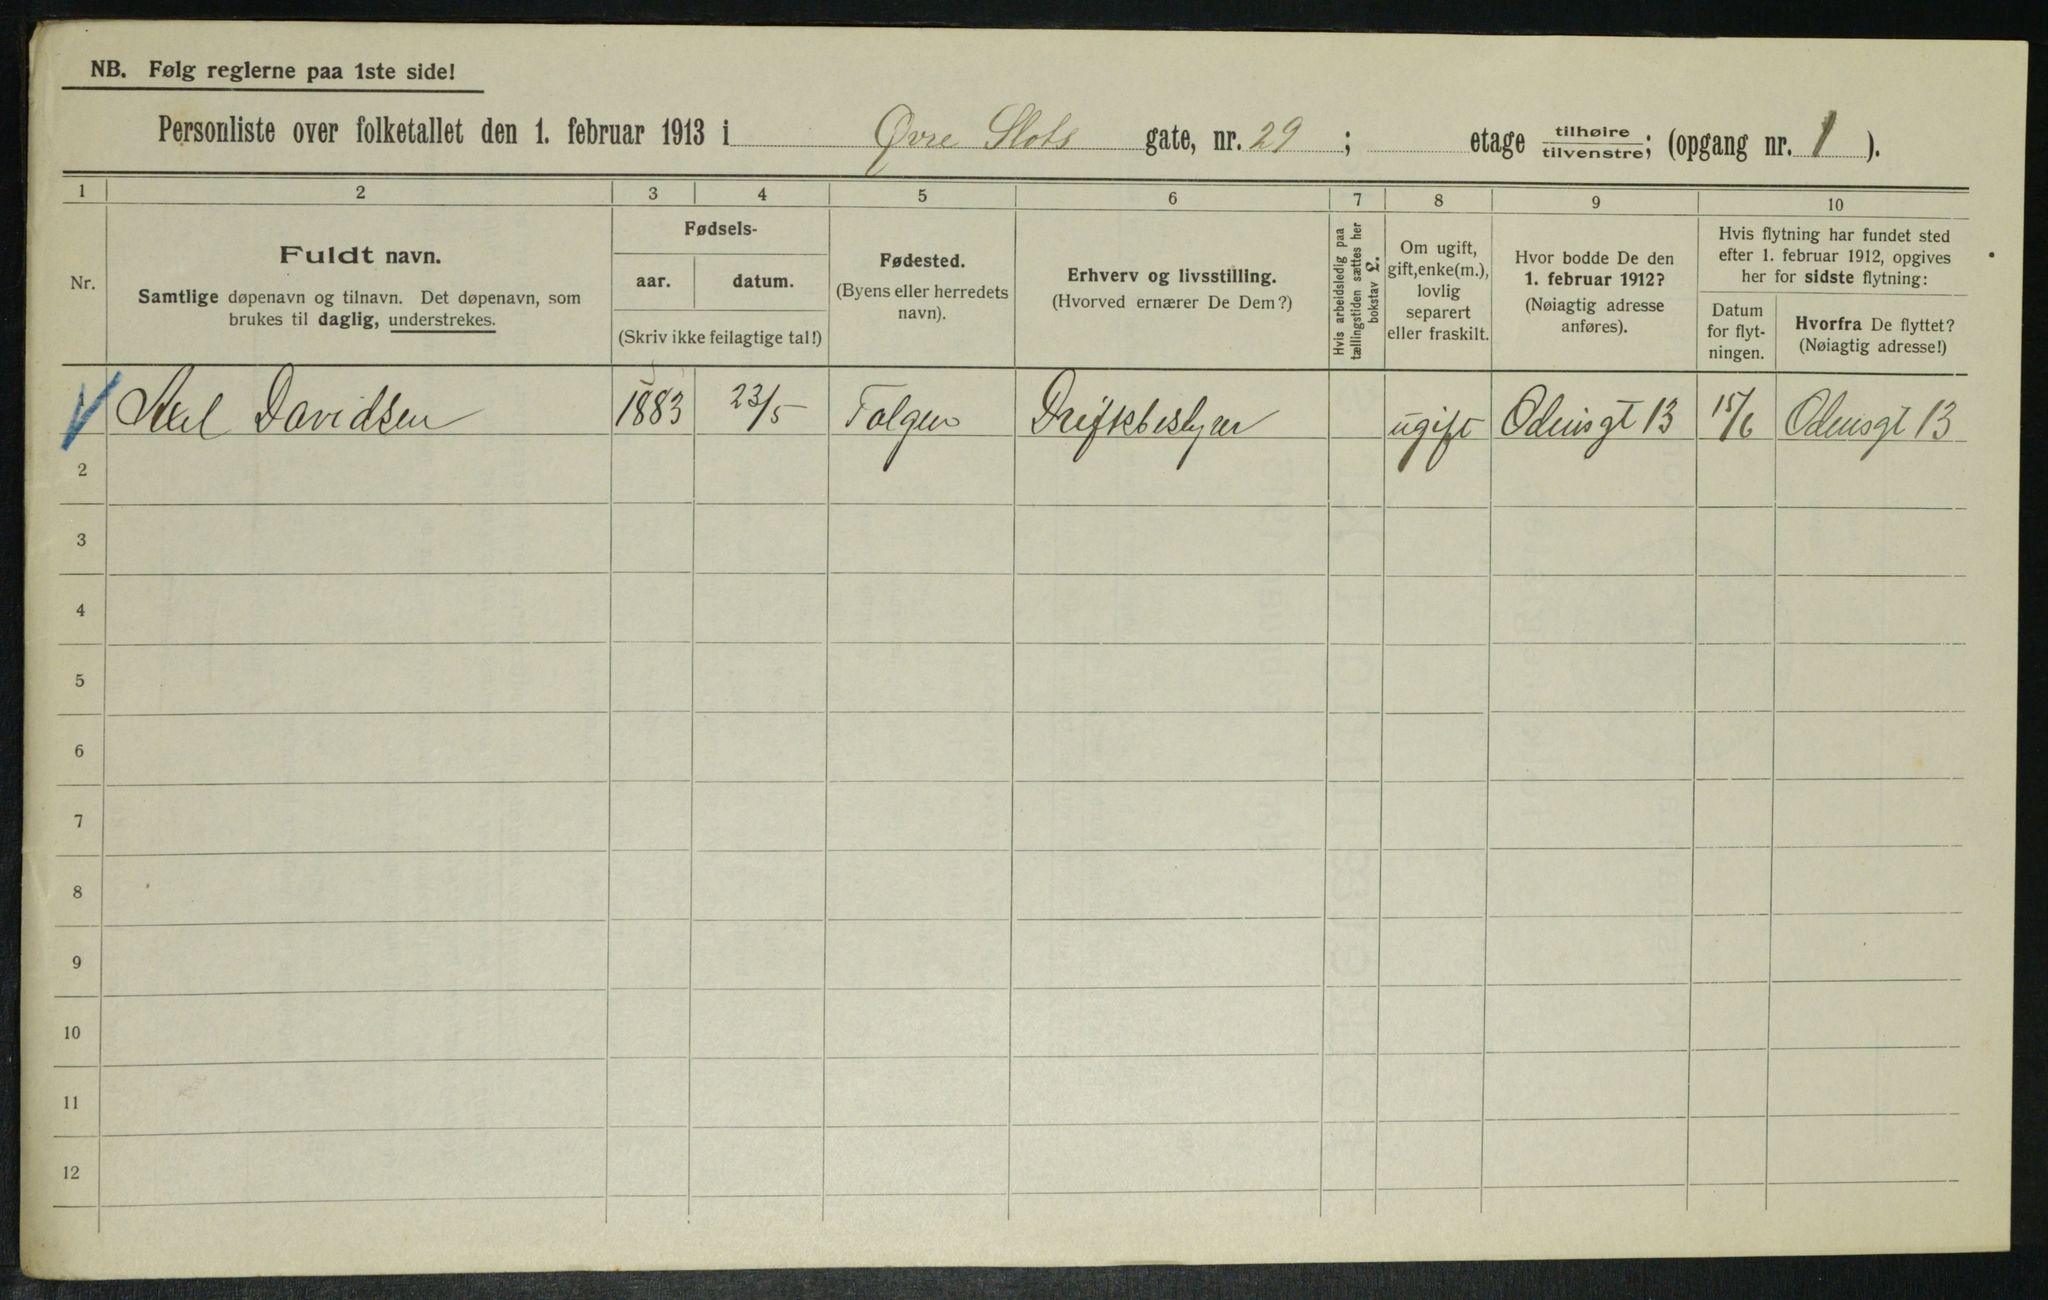 NB. Følg reglerne paa 1ste side!
Personliste over folketallet den 1. februar 1913 i Øvre Slots gate, nr. 29 ; etage tilhøire / tilvenstre; (opgang nr. 1 ).
1 2 3 4 5 6 7 8 9 10
Nr.
Fuldt navn.
Samtlige døpenavn og tilnavn. Det døpenavn, som
brukes til daglig, understrekes.
Fødsels-
aar. datum.
(Skriv ikke feilagtige tal!)
Fødested.
(Byens eller herredets
navn).
Erhverv og livsstilling.
(Hvorved ernærer De Dem?)
Hvis arbeidsledig paa
tællingstiden sættes her
bokstav L.
Om ugift,
gift, enke(m.),
lovlig
separert
eller fraskilt.
Hvor bodde De den
1. februar 1912?
(Nøiagtig adresse
anføres).
Hvis flytning har fundet sted
efter 1. februar 1912, opgives
her for sidste flytning:
Datum
for flyt-
ningen.
Hvorfra De flyttet?
(Nøiagtig adresse!)
Davidsen 1883 23/5 Tolgen ugift Odensgt 13 15/6 Odensgt 13
2
3
4
5
6
7
8
9
10
11
12